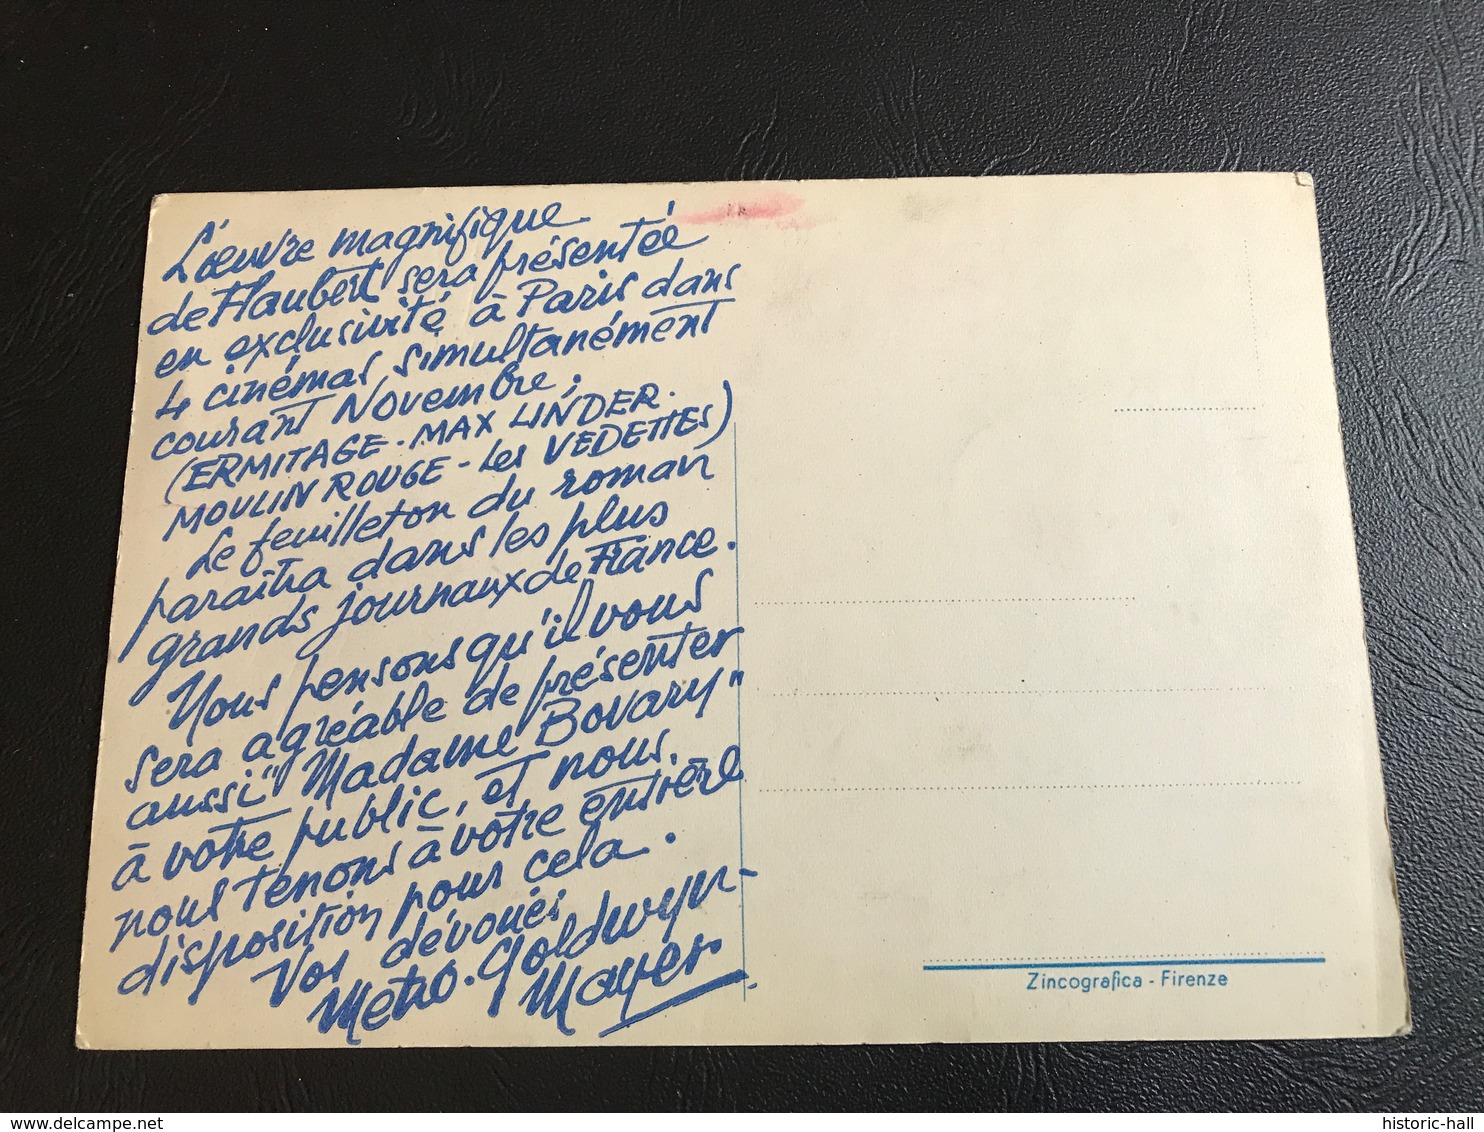 L'œuvre magnifique
de Flaubert sera présentée
en exclusivité à Paris dans
4 cinémas simultanément
courant Novembre.
(ERMITAGE - MAX LINDER -
MOULIN ROUGE - Les VEDETTES)
Le feuilleton du roman
paraîtra dans les plus
grands journaux de France.
Nous pensons qu'il vous
sera agréable de présenter
aussi "Madame Bovary"
à votre public, et nous
nous tenons à votre entière
disposition pour cela.
Vos dévoués
Metro-Goldwyn-
Mayer
Zincografica - Firenze
delcampe.net
historic-hall